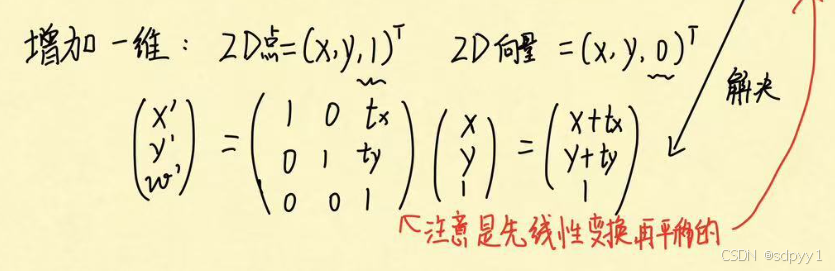 增加一维: 2D点=(x,y,1)ᵀ 2D向量=(x,y,0)ᵀ
解决
(x' y' w') = (1 0 tx 0 1 ty 0 0 1) (x y 1) = (x+tx y+ty 1)
注意是先线性变换再平移的
CSDN @sdpyy1